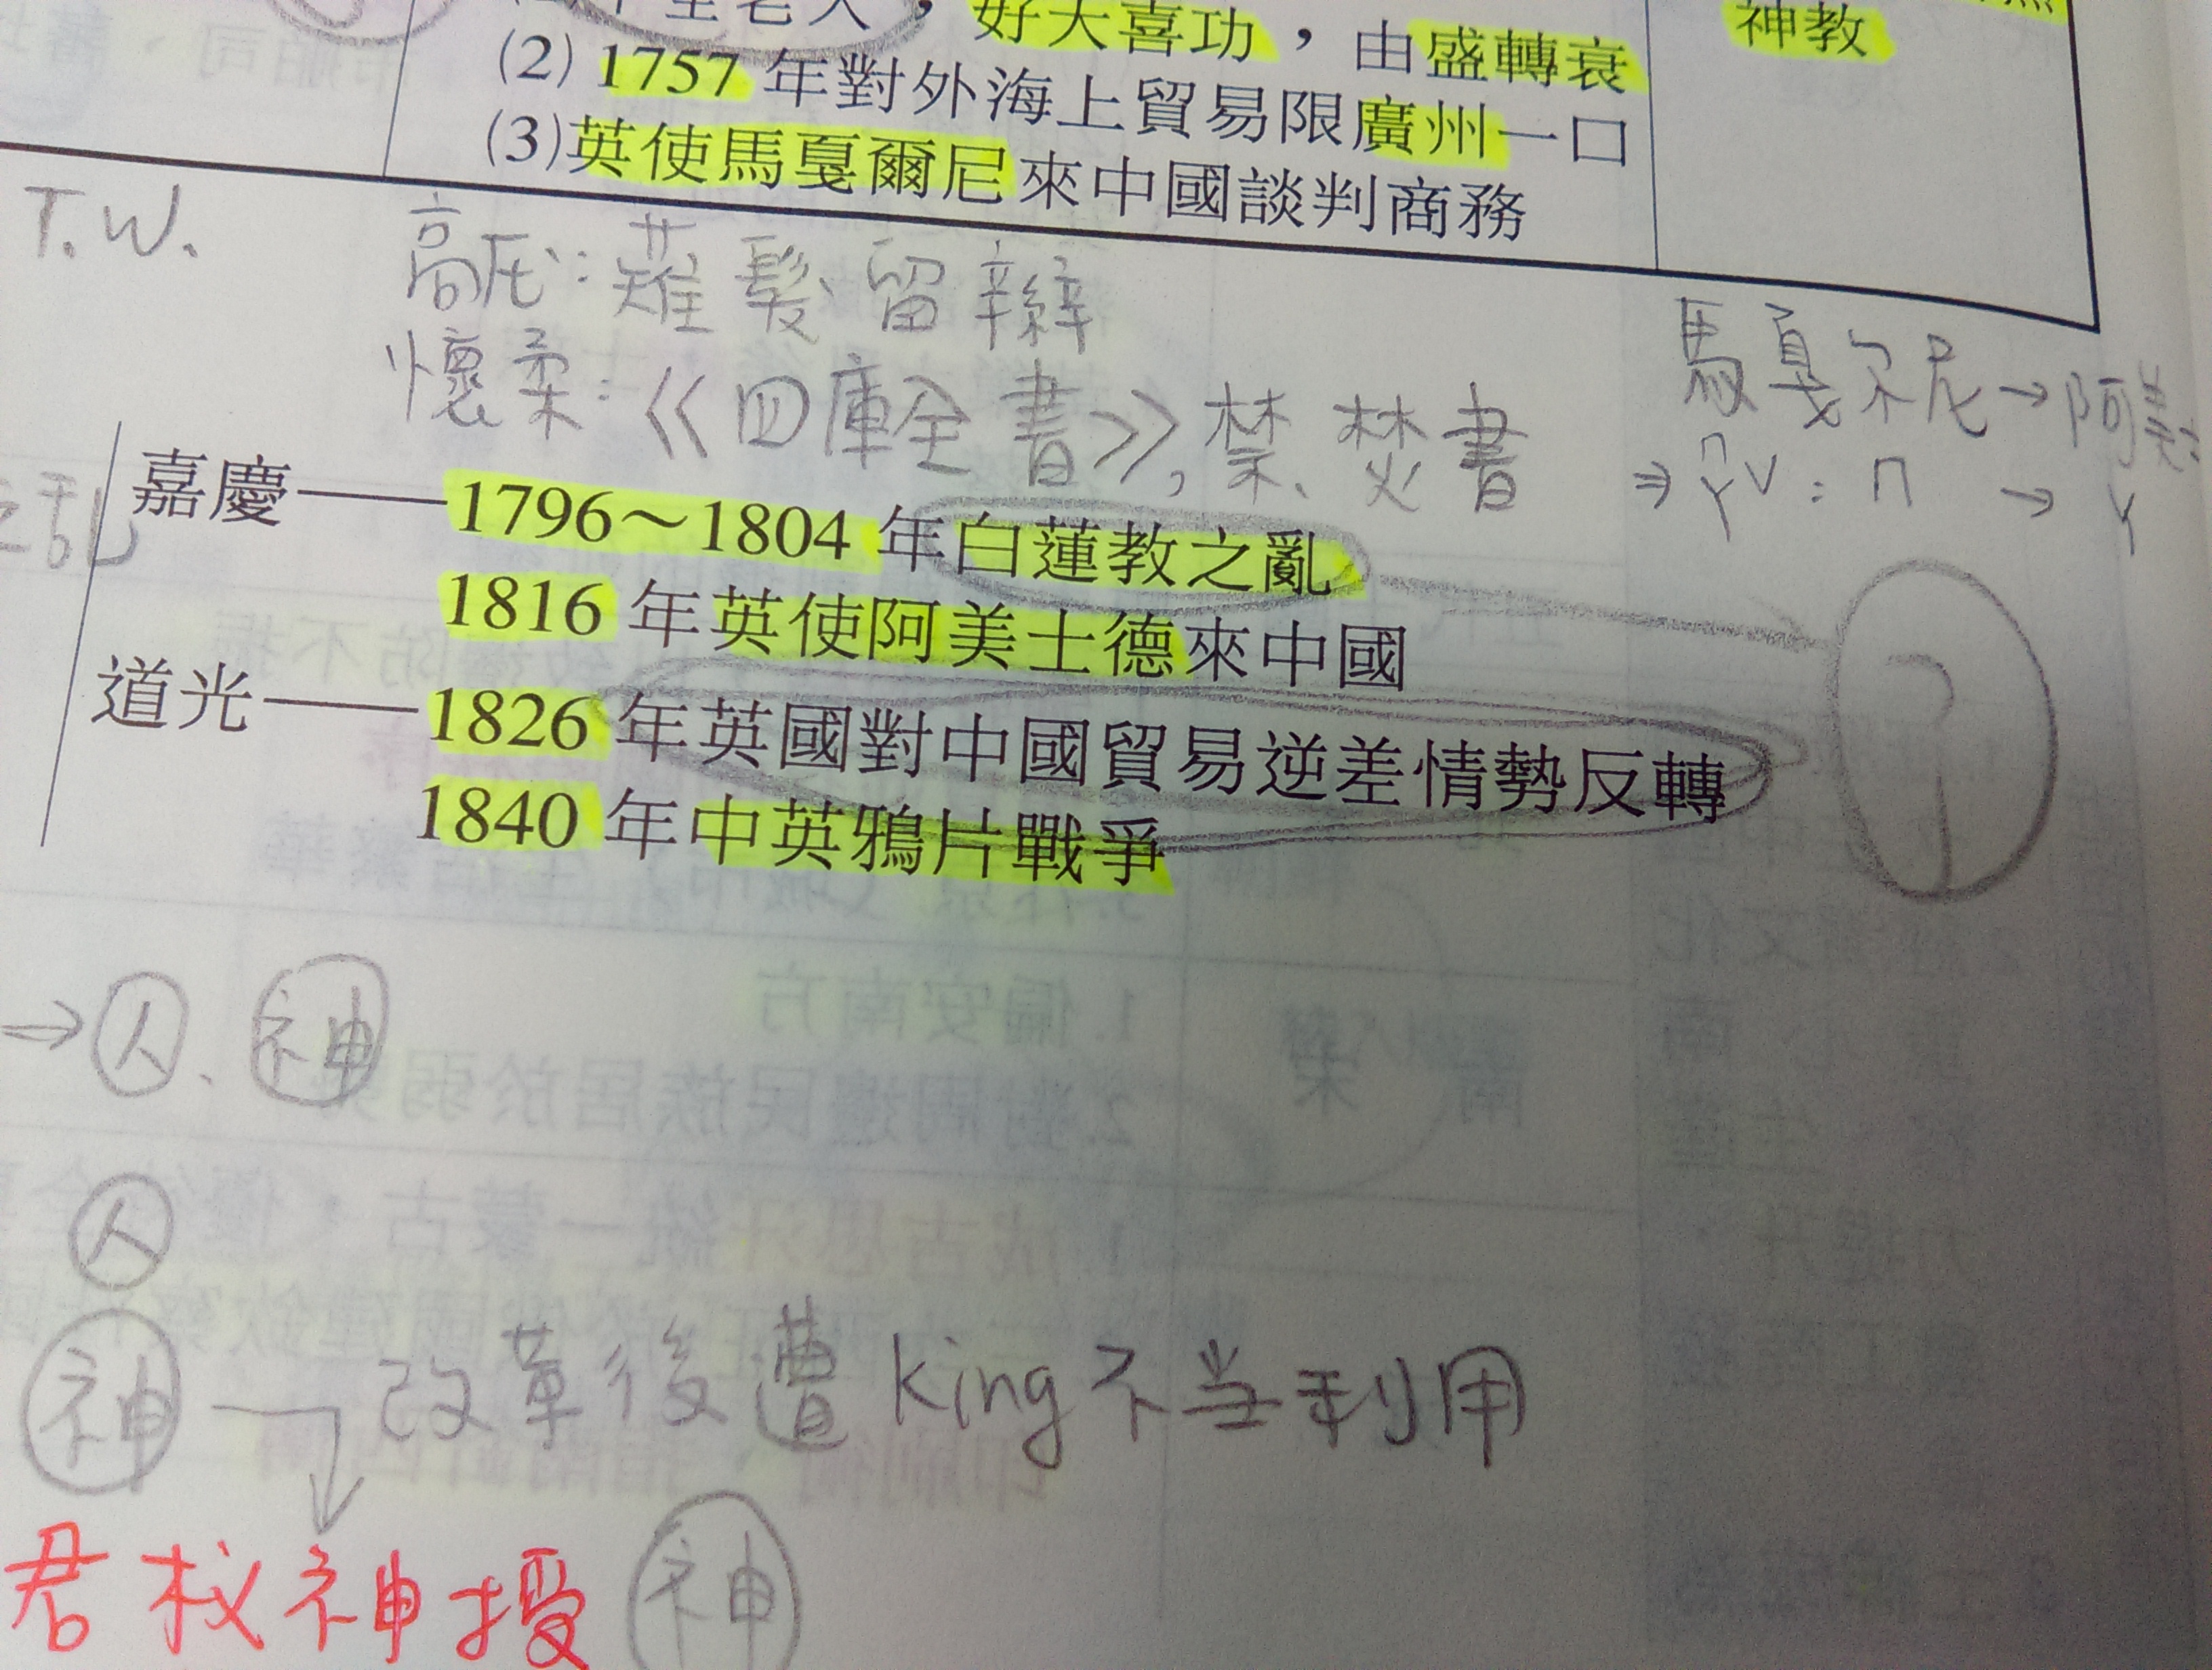 好大喜功，由盛轉衰
神教
(2) 1757 年對外海上貿易限廣州一口
(3)英使馬戛爾尼來中國談判商務
T.W.
高压:薙髮、留辮
懷柔:《四庫全書》,禁、焚書
馬戛尔尼→阿美
⇒ㄇㄚˇ:ㄇ→ㄚ
之乱
嘉慶——1796～1804 年白蓮教之亂
1816 年英使阿美士德來中國
道光——1826 年英國對中國貿易逆差情勢反轉
1840 年中英鴉片戰爭
⇒人、神
人
神
改革後遭King不当利用
君权神授 神